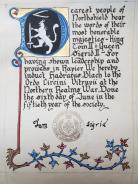 Dearest people of
Northshield hear
the words of their
most honorable
majesties King
Tom II & Queen
Sigrid II. For
having shown leadership and
prowess in Honor We hereby
induct Hadratus Blach to the
Ordo Circini Vitruvii at the
Northern Realms War. Done
the sixth day of June in the
fiftieth year of the society.
Tom Sigrid